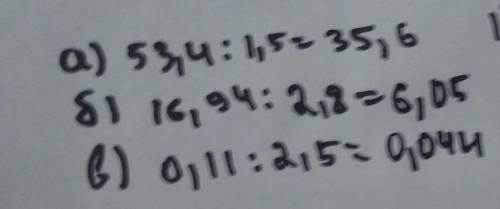 а) 53,4:1,5=35,6
б) 16,94:2,8=6,05
в) 0,11:2,5=0,044